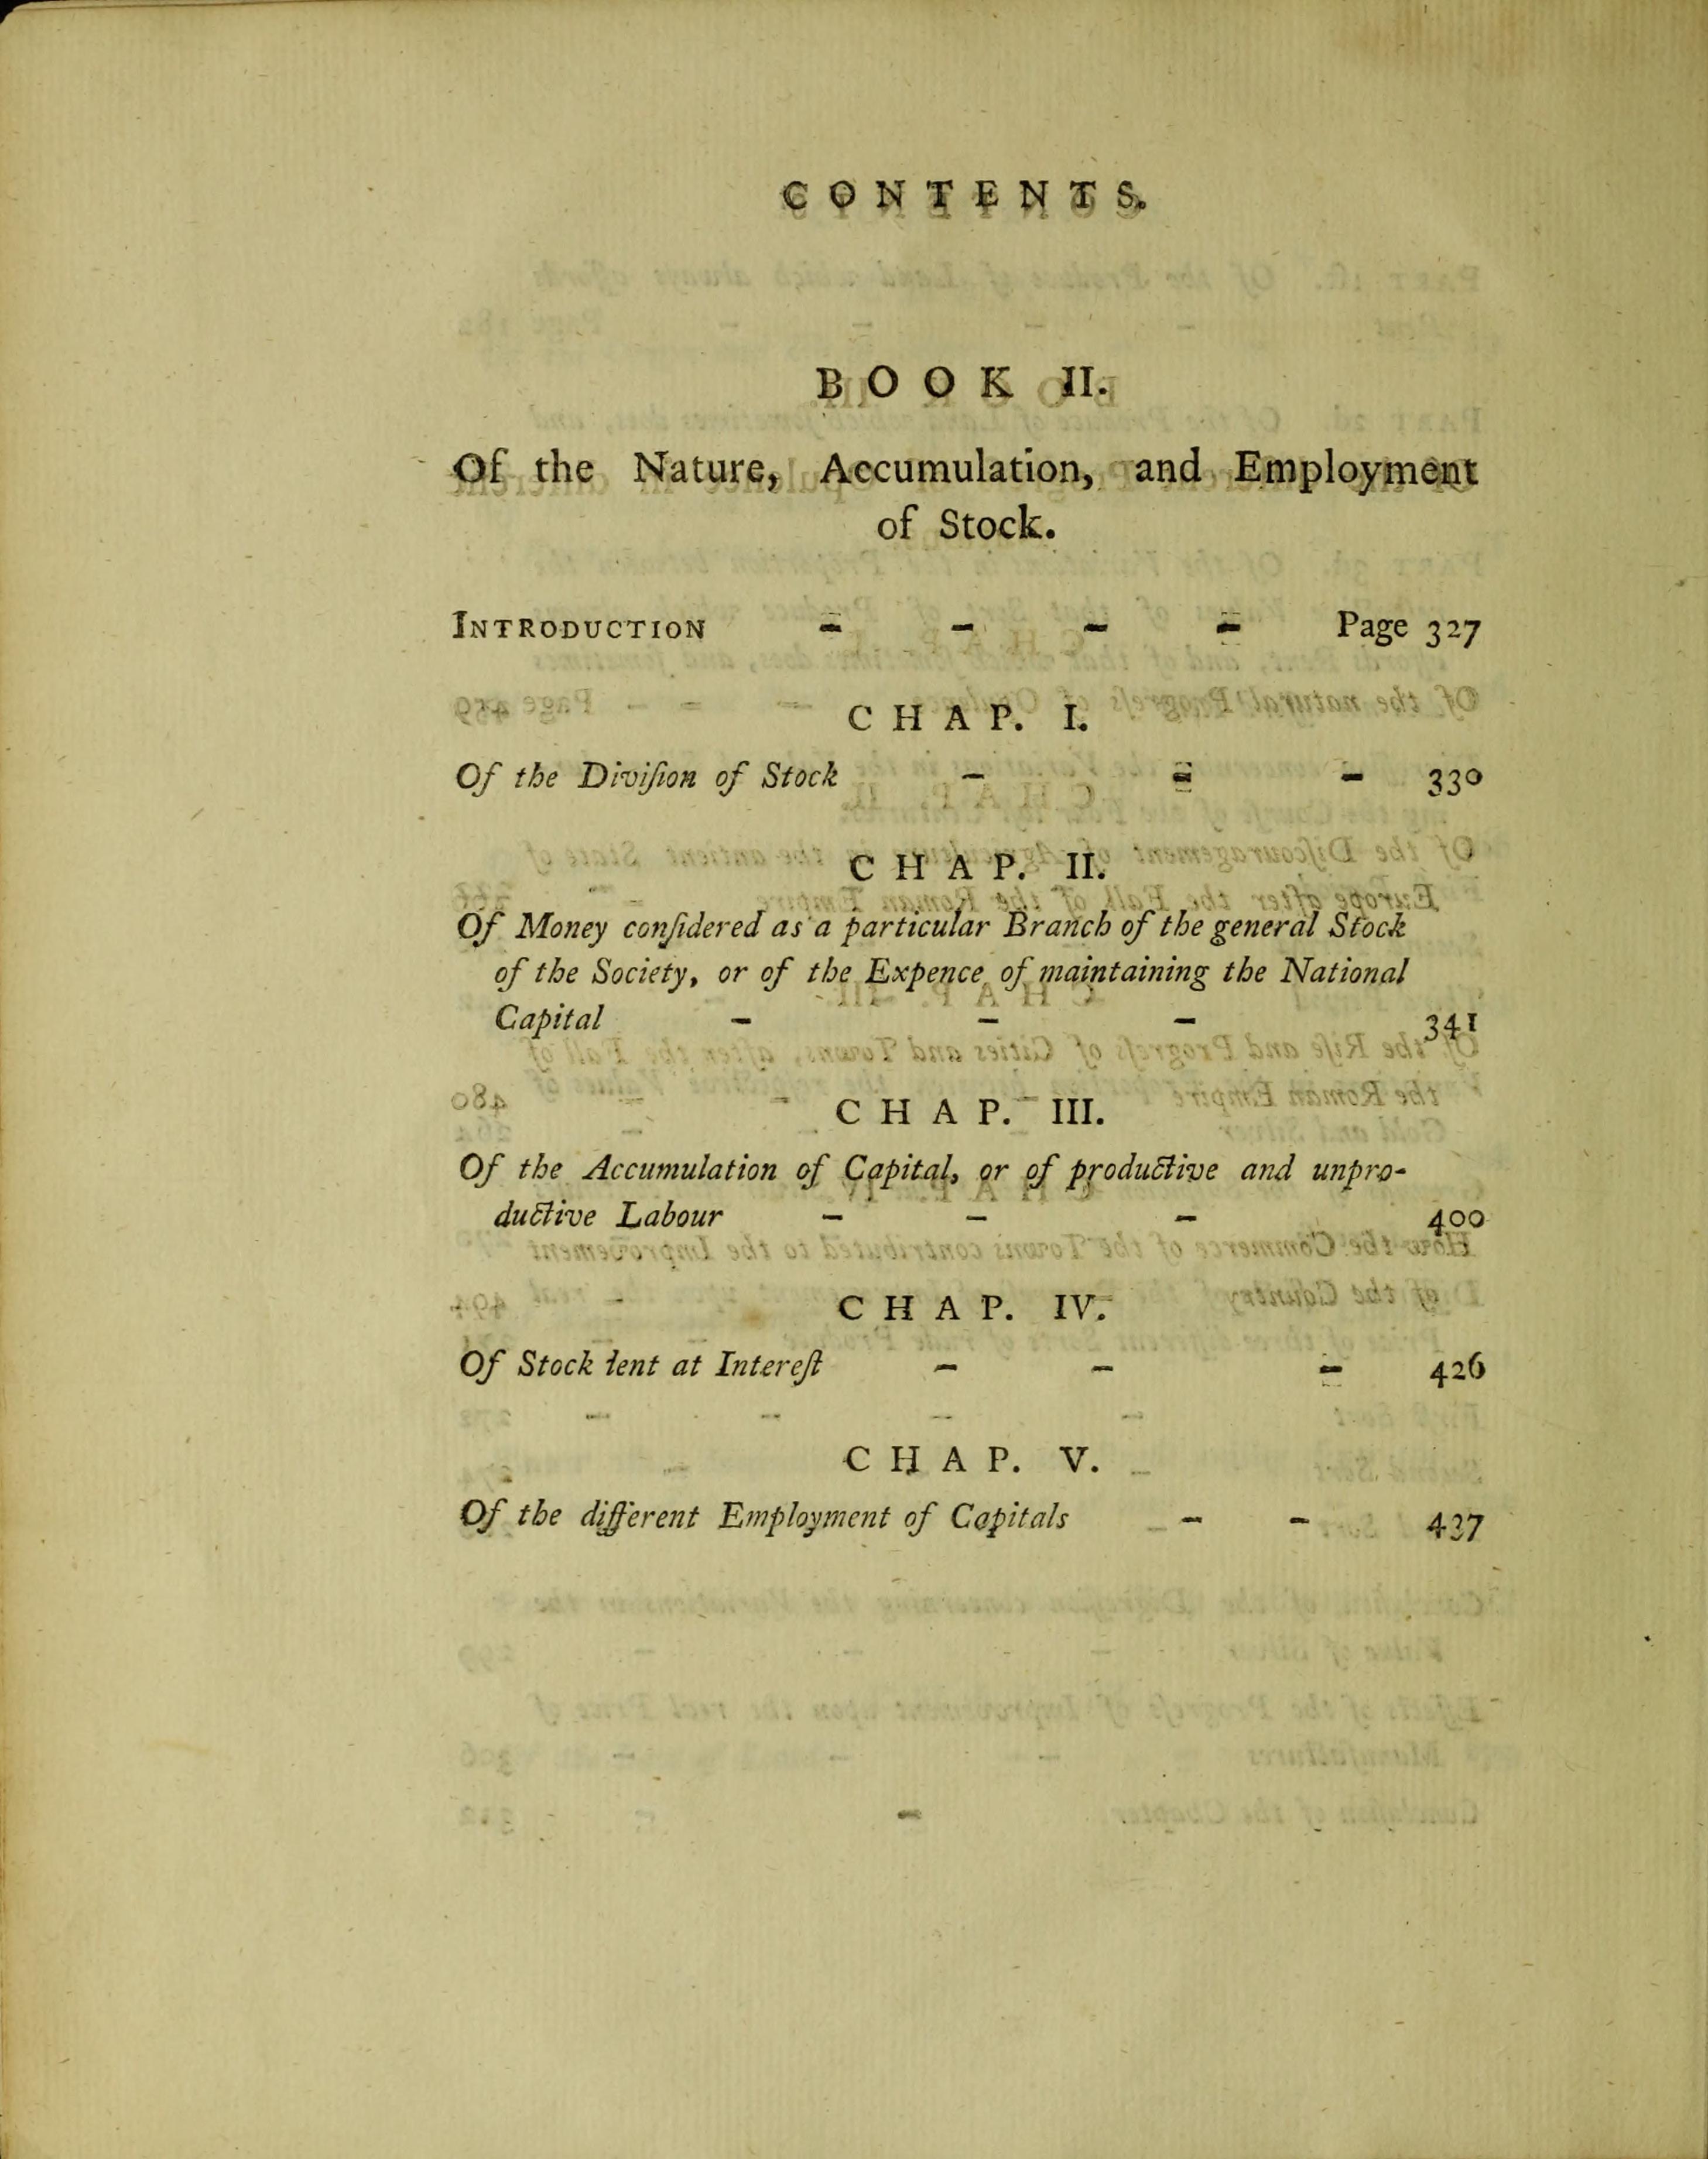 CONTENTS.
BOOK II.
Of the Nature, Accumulation, and Employment
of Stock.
INTRODUCTION - - - - Page 327
CHAP. I.
Of the Diviſion of Stock - - - 330
CHAP. II.
Of Money conſidered as a particular Branch of the general Stock
of the Society, or of the Expence of maintaining the National
Capital - - - 341
CHAP. III.
Of the Accumulation of Capital, or of productive and unpro-
ductive Labour - - - 400
CHAP. IV.
Of Stock lent at Intereſt - - - 426
CHAP. V.
Of the different Employment of Capitals - - 437